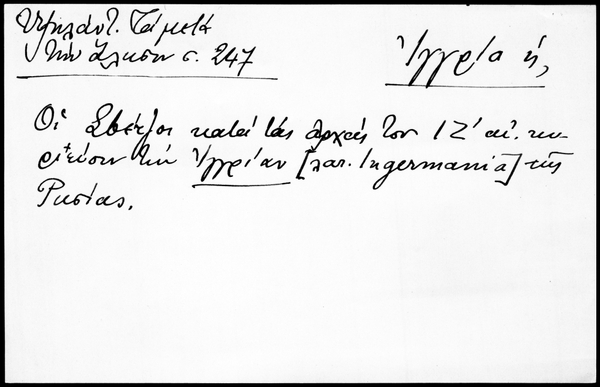 Ὑψηλάντ. Τὰ μετὰ
τὴν Ἅλωσιν σ. 247
Ἰγγρία ἡ,
Οἱ Σβέτζοι κατὰ τὰς ἀρχὰς τοῦ ΙΖ΄ αἰ. κυ-
ριεύουν τὴν Ἰγγρίαν [λατ. Ingermania] τῆς
Ρωσίας.